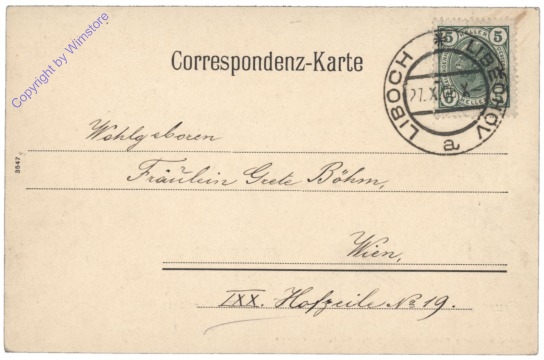 Copyright by Wimstore
Correspondenz-Karte
5 HELLER 5
LIBOCH * LIBĚCHOV
a
Wohlgeboren
Fräulein Grete Böhm,
Wien,
IXX. Hofzeile No 19.
3547